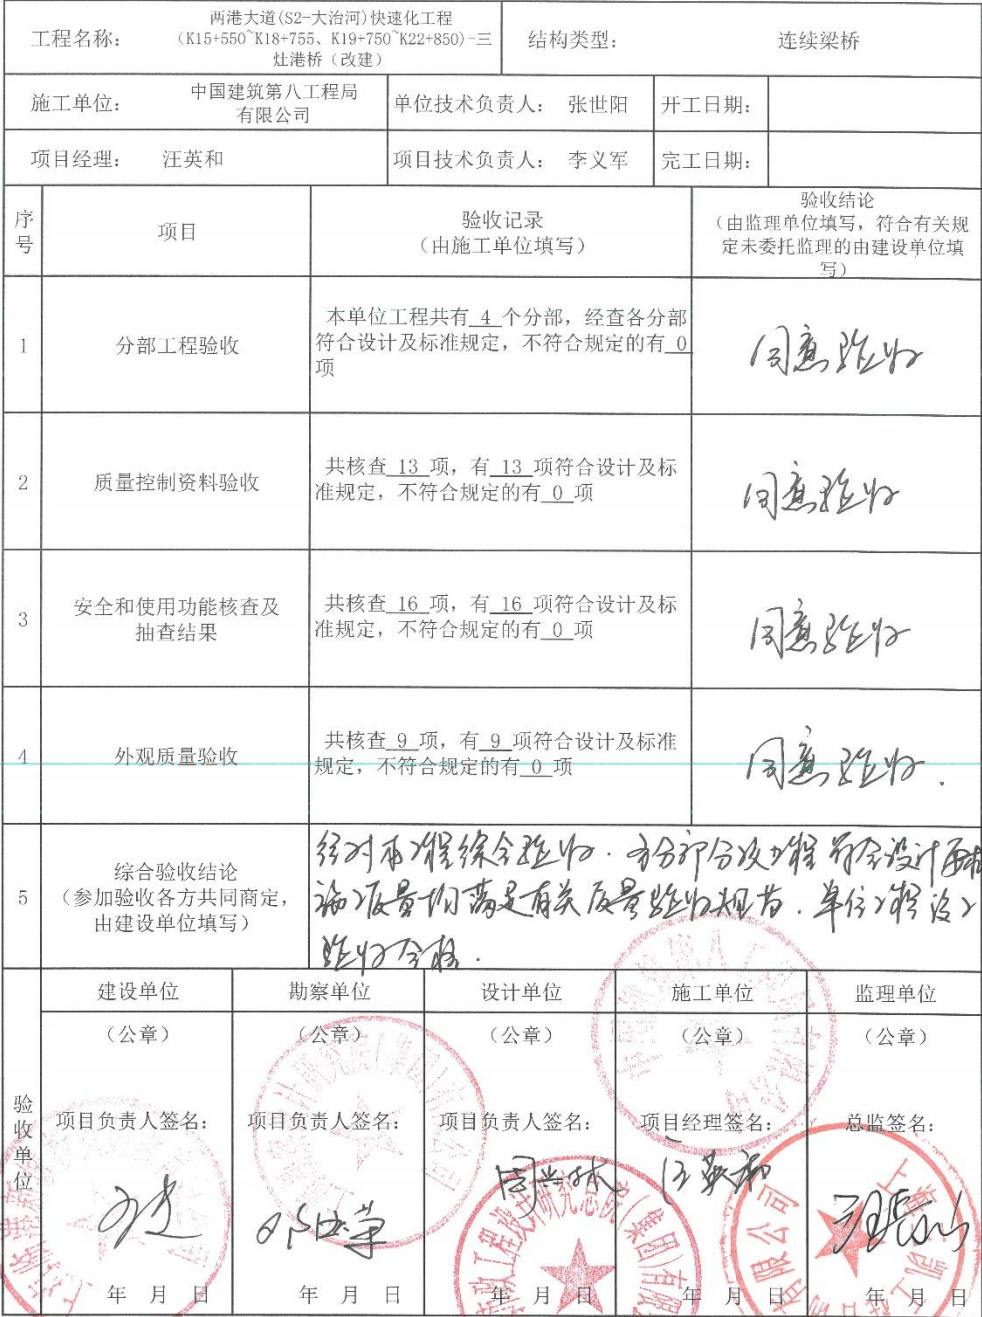 工程名称：
两港大道(S2-大治河)快速化工程
(K15+550~K18+755、K19+750~K22+850)-三
灶港桥（改建）
结构类型：
连续梁桥
施工单位：
中国建筑第八工程局
有限公司
单位技术负责人：
张世阳
开工日期：
项目经理：
汪英和
项目技术负责人：
李义军
完工日期：
序
号
项目
验收记录
（由施工单位填写）
验收结论
（由监理单位填写，符合有关规
定未委托监理的由建设单位填
写）
1
分部工程验收
本单位工程共有 4 个分部，经查各分部
符合设计及标准规定，不符合规定的有 0
项
同意验收
2
质量控制资料验收
共核查 13 项，有 13 项符合设计及标
准规定，不符合规定的有 0 项
同意验收
3
安全和使用功能核查及
抽查结果
共核查 16 项，有 16 项符合设计及标
准规定，不符合规定的有 0 项
同意验收
4
外观质量验收
共核查 9 项，有 9 项符合设计及标准
规定，不符合规定的有 0 项
同意验收.
5
综合验收结论
（参加验收各方共同商定，
由建设单位填写）
经对本工程综合验收.各分部分项工程符合设计要求
施工质量均满足有关质量验收规范.单位工程
验收合格.
验
收
单
位
建设单位
勘察单位
设计单位
施工单位
监理单位
（公章）
（公章）
（公章）
（公章）
（公章）
项目负责人签名：
项目负责人签名：
项目负责人签名：
项目经理签名：
总监签名：
周兴林
汪英和
年 月 日
年 月 日
年 月 日
年 月 日
年 月 日